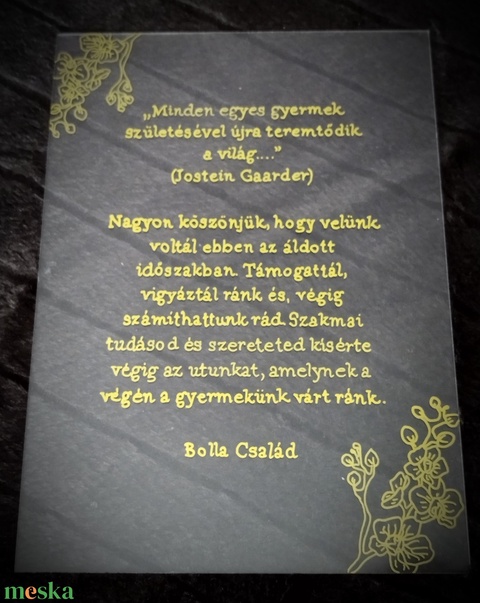 „Minden egyes gyermek
születésével újra teremtődik
a világ....”
(Jostein Gaarder)
Nagyon köszönjük, hogy velünk
voltál ebben az áldott
időszakban. Támogattál,
vigyáztál ránk és, végig
számíthattunk rád. Szakmai
tudásod és szereteted kísérte
végig az utunkat, amelynek a
végén a gyermekünk várt ránk.
Bolla Család
meska